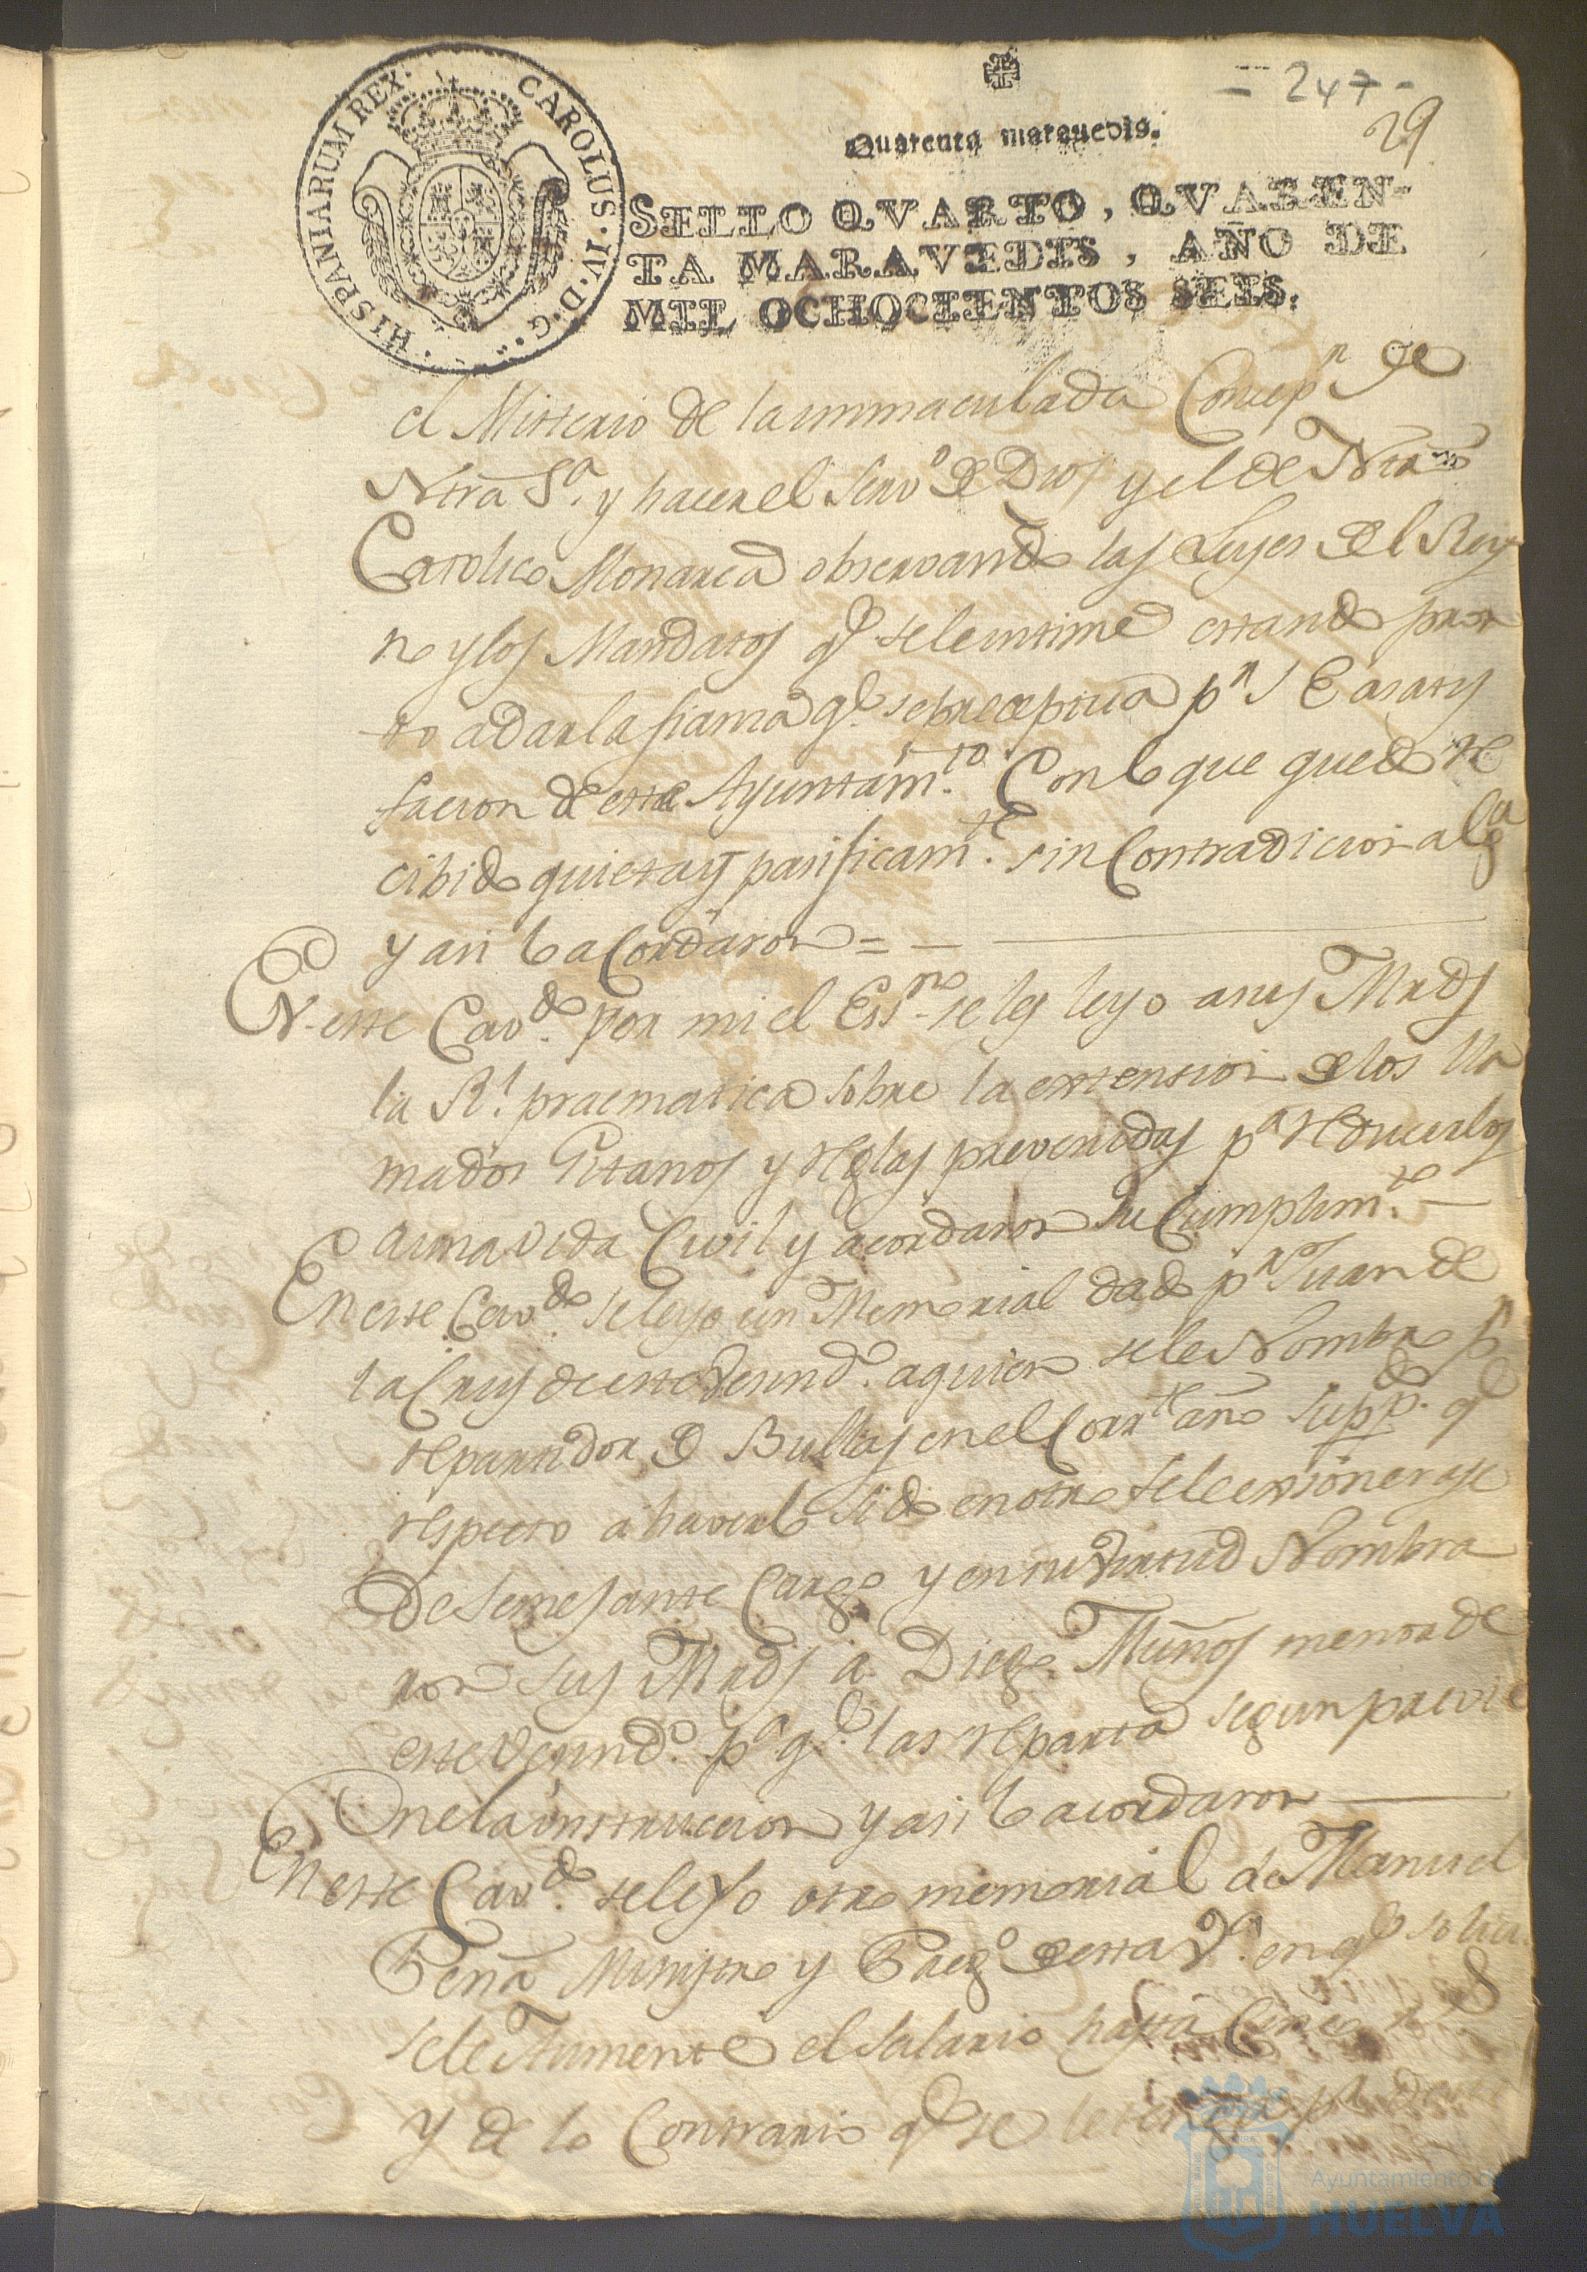 = 247 -
29
HISPANIARUM REX. CAROLUS·IV·D·G·
Quarenta marauedis.
SELLO QVARTO, QVAREN-
TA MARAVEDIS, AÑO DE
MIL OCHOCIENTOS SEIS.
el Misterio de la inmaculada Concepn de
Ntrã Sa. y hacer el servo de Dios y el de Ntrõ
Catolico Monarca observando las Leyes del Rey
no y los Mandatos qe se le intime estando pron
to a dar la fianza qe. se preceptua pr
facion de este Ayuntamto. Con lo que quedo re
cibido quieta y pasificamte. sin Contradicion alga
y asi lo acordaron = —
En este Cavdo. por mi el Essno se les leyo a sus Mrds
la Rl. pracmatica sobre la extension de los lla
mados Gitanos y reglas prevenidas pa reducirlos
a una vida Civil y acordaron su Cumplimto. —
En este Cavdo. se leyo un Memorial dado pr Juan de
la Crus de este Vecindo. a quien se le Nombro pr
repartidor de Bullas en el Corrte año suppdo. qe
respecto a haverlo sido en otro se le exsonerase
de semejante Cargo y en su virtud Nombra
ron sus Mrds a Diego Muños menor de
este Vecindo. pa qe. las reparta segun previe
ne la instruccion y asi lo acordaron —
En este Cavdo. se leyo otro memorial de Manuel
Peña Ministro y Prego de esta Va. en qe solici
se le Aumente el salario hasta Cinco rs
y de lo Contrario qe se le tenga pr
Ayuntamiento de
HUELVA